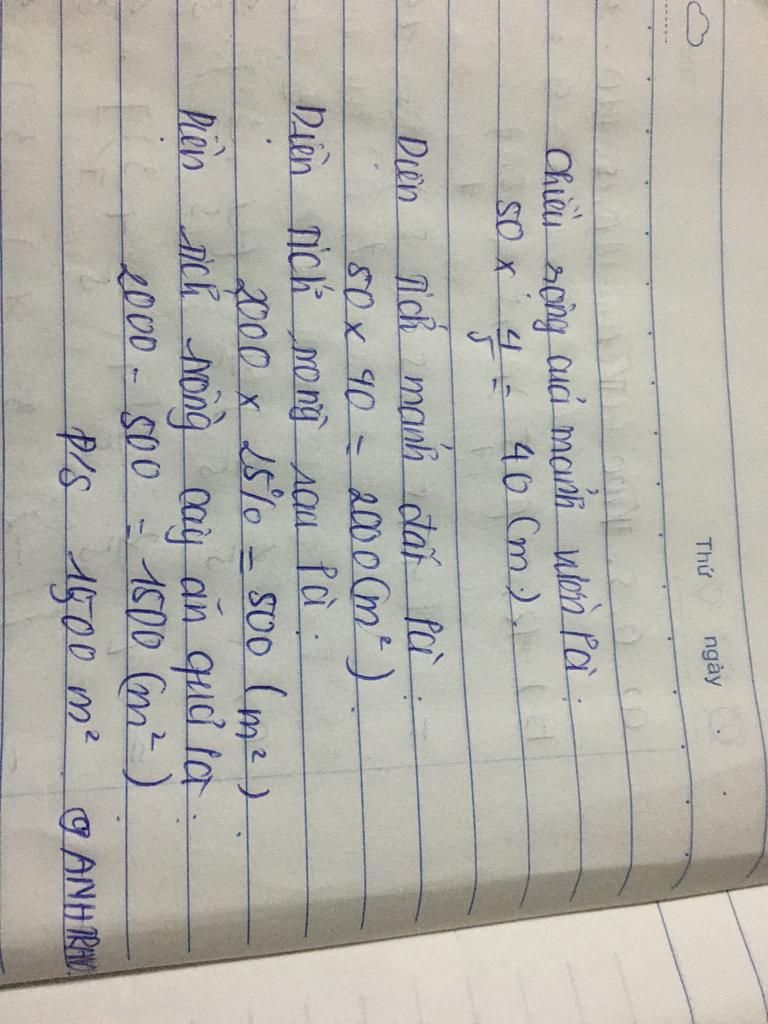 Thứ ngày
Chiều rộng của mảnh vườn là:
50 x 4/5 = 40 (m).
Diện tích mảnh đất là:
50 x 40 = 2000 (m²).
Diện tích trồng rau là:
2000 x 25% = 500 (m²).
Diện tích trồng cây ăn quả là:
2000 - 500 = 1500 (m²)
Đ/S 1500 m²